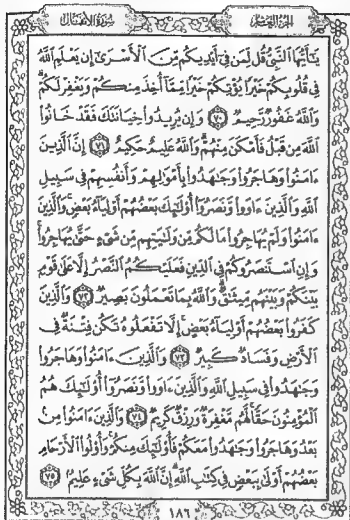 الجزء العاشر سورة الأنفال
يَٰٓأَيُّهَا ٱلنَّبِىُّ قُل لِّمَن فِىٓ أَيْدِيكُم مِّنَ ٱلْأَسْرَىٰٓ إِن يَعْلَمِ ٱللَّهُ
فِى قُلُوبِكُمْ خَيْرًا يُؤْتِكُمْ خَيْرًا مِّمَّآ أُخِذَ مِنكُمْ وَيَغْفِرْ لَكُمْ
وَٱللَّهُ غَفُورٌ رَّحِيمٌ ٧٠ وَإِن يُرِيدُوا۟ خِيَانَتَكَ فَقَدْ خَانُوا۟
ٱللَّهَ مِن قَبْلُ فَأَمْكَنَ مِنْهُمْ وَٱللَّهُ عَلِيمٌ حَكِيمٌ ٧١ إِنَّ ٱلَّذِينَ
ءَامَنُوا۟ وَهَاجَرُوا۟ وَجَٰهَدُوا۟ بِأَمْوَٰلِهِمْ وَأَنفُسِهِمْ فِى سَبِيلِ
ٱللَّهِ وَٱلَّذِينَ ءَاوَوا۟ وَّنَصَرُوٓا۟ أُو۟لَٰٓئِكَ بَعْضُهُمْ أَوْلِيَآءُ بَعْضٍ وَٱلَّذِينَ
ءَامَنُوا۟ وَلَمْ يُهَاجِرُوا۟ مَا لَكُم مِّن وَلَٰيَتِهِم مِّن شَىْءٍ حَتَّىٰ يُهَاجِرُوا۟
وَإِنِ ٱسْتَنصَرُوكُمْ فِى ٱلدِّينِ فَعَلَيْكُمُ ٱلنَّصْرُ إِلَّا عَلَىٰ قَوْمٍۭ
بَيْنَكُمْ وَبَيْنَهُم مِّيثَٰقٌ وَٱللَّهُ بِمَا تَعْمَلُونَ بَصِيرٌ ٧٢ وَٱلَّذِينَ
كَفَرُوا۟ بَعْضُهُمْ أَوْلِيَآءُ بَعْضٍ إِلَّا تَفْعَلُوهُ تَكُن فِتْنَةٌ فِى
ٱلْأَرْضِ وَفَسَادٌ كَبِيرٌ ٧٣ وَٱلَّذِينَ ءَامَنُوا۟ وَهَاجَرُوا۟
وَجَٰهَدُوا۟ فِى سَبِيلِ ٱللَّهِ وَٱلَّذِينَ ءَاوَوا۟ وَّنَصَرُوٓا۟ أُو۟لَٰٓئِكَ هُمُ
ٱلْمُؤْمِنُونَ حَقًّا لَّهُم مَّغْفِرَةٌ وَرِزْقٌ كَرِيمٌ ٧٤ وَٱلَّذِينَ ءَامَنُوا۟ مِنۢ
بَعْدُ وَهَاجَرُوا۟ وَجَٰهَدُوا۟ مَعَكُمْ فَأُو۟لَٰٓئِكَ مِنكُمْ وَأُو۟لُوا۟ ٱلْأَرْحَامِ
بَعْضُهُمْ أَوْلَىٰ بِبَعْضٍ فِى كِتَٰبِ ٱللَّهِ إِنَّ ٱللَّهَ بِكُلِّ شَىْءٍ عَلِيمٌۢ ٧٥
١٨٦